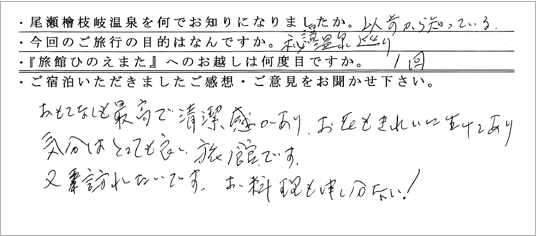 ・尾瀬檜枝岐温泉を何でお知りになりましたか。以前から知っている。
・今回のご旅行の目的はなんですか。秘湯温泉巡り
・『旅館ひのえまた』へのお越しは何度目ですか。1回
・ご宿泊いただきましたご感想・ご意見をお聞かせ下さい。
おもてなしも最高で清潔感があり、お花もきれいに生けてあり
気分はとっても良い旅館です。
又訪れたいです。お料理も申し分ない!